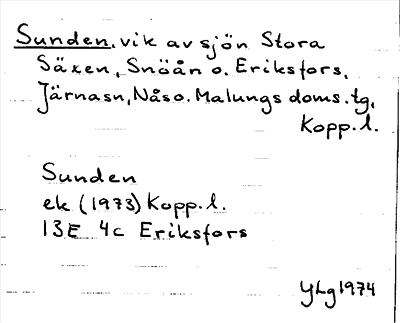 Sunden, vik av sjön Stora
Säxen, Snöån o. Eriksfors,
Järnasn, Nåso. Malungs doms. tg,
Kopp. l.
Sunden
ek (1973) Kopp. l.
13E 4c Eriksfors
YLg 1974